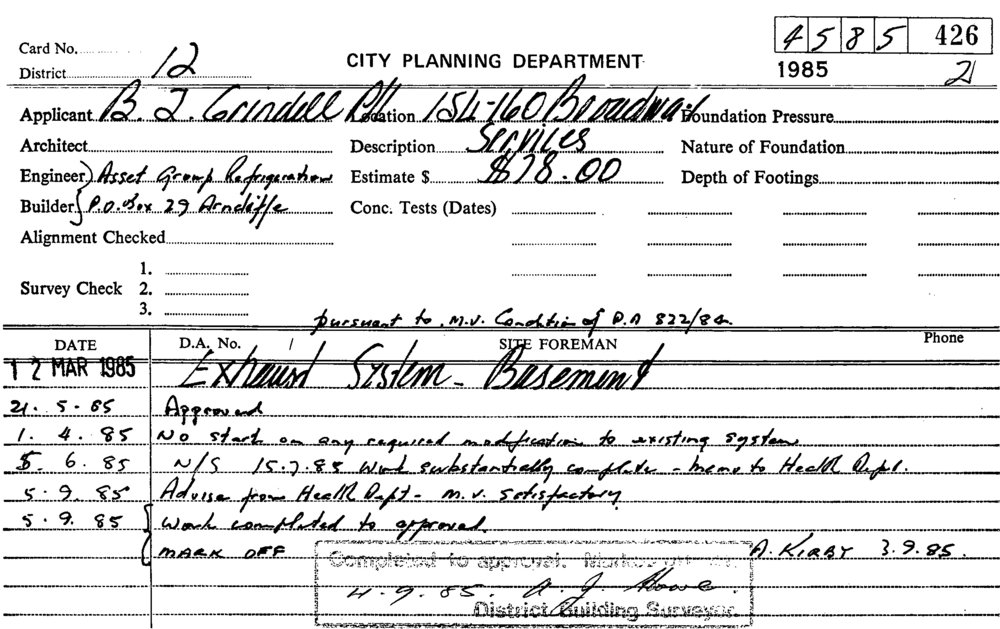 4 5 8 5 426
Card No.
District 12 CITY PLANNING DEPARTMENT 1985 21
Applicant B. J. Grindell P/L Location 154-160 Broadway Foundation Pressure
Architect Description Services Nature of Foundation
Engineer Asset Group Refrigeration Estimate $ $78.00 Depth of Footings
Builder P.O. Box 29 Arncliffe Conc. Tests (Dates)
Alignment Checked
1.
Survey Check 2.
3.
pursuant to M.V. Condition of D.A 822/84
DATE D.A. No. / SITE FOREMAN Phone
12 MAR 1985 Exhaust System - Basement
21. 5 - 85 Approved
1. 4. 85 No start on any required modification to existing system
5. 6. 85 N/S 15.7.85 Work substantially complete - memo to Health Dept.
5. 9. 85 Advise from Health Dept - M.V. satisfactory
5. 9. 85 Work completed to approval.
MARK OFF A. KIRBY 3.9.85.
Completed to approval. Marked off
4-9.85. A. J. Howe
District Building Surveyor